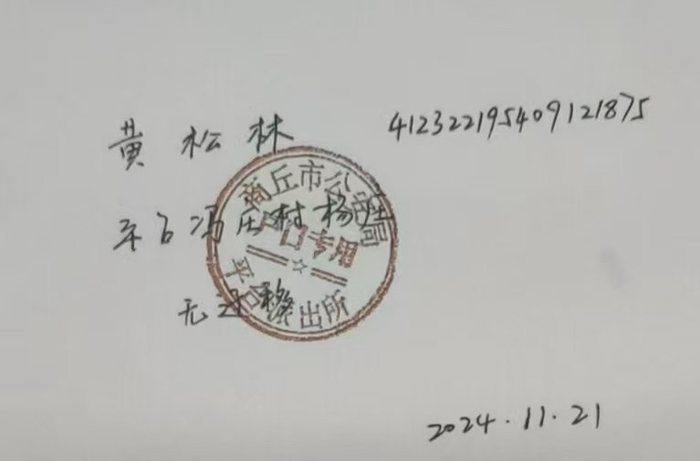 黄松林 412322195409121875
平台冯庄村杨庄
无迁移
商丘市公安局
户口专用
平台派出所
2024.11.21